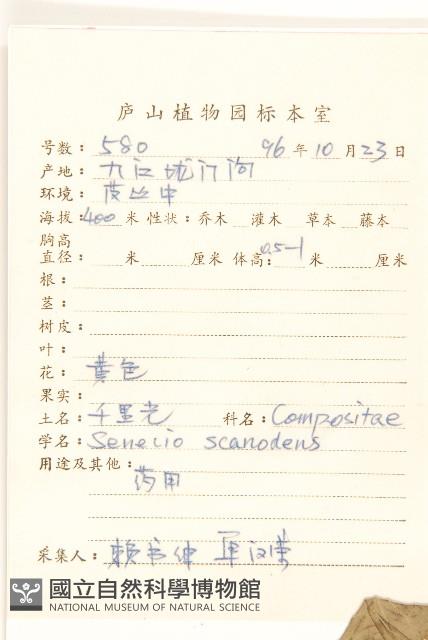 庐山植物园标本室
号数：580 96年10月23日
产地：九江
环境：丛中
海拔：400米 性状：乔木 灌木 草本 藤本
胸高
直径： 米 厘米 体高：0.5-1米 厘米
根：
茎：
树皮：
叶：
花：黄色
果实：
土名：千里光 科名：Compositae
学名：Senecio scanodens
用途及其他：
药用
采集人：赖书绅
國立自然科學博物館
NATIONAL MUSEUM OF NATURAL SCIENCE